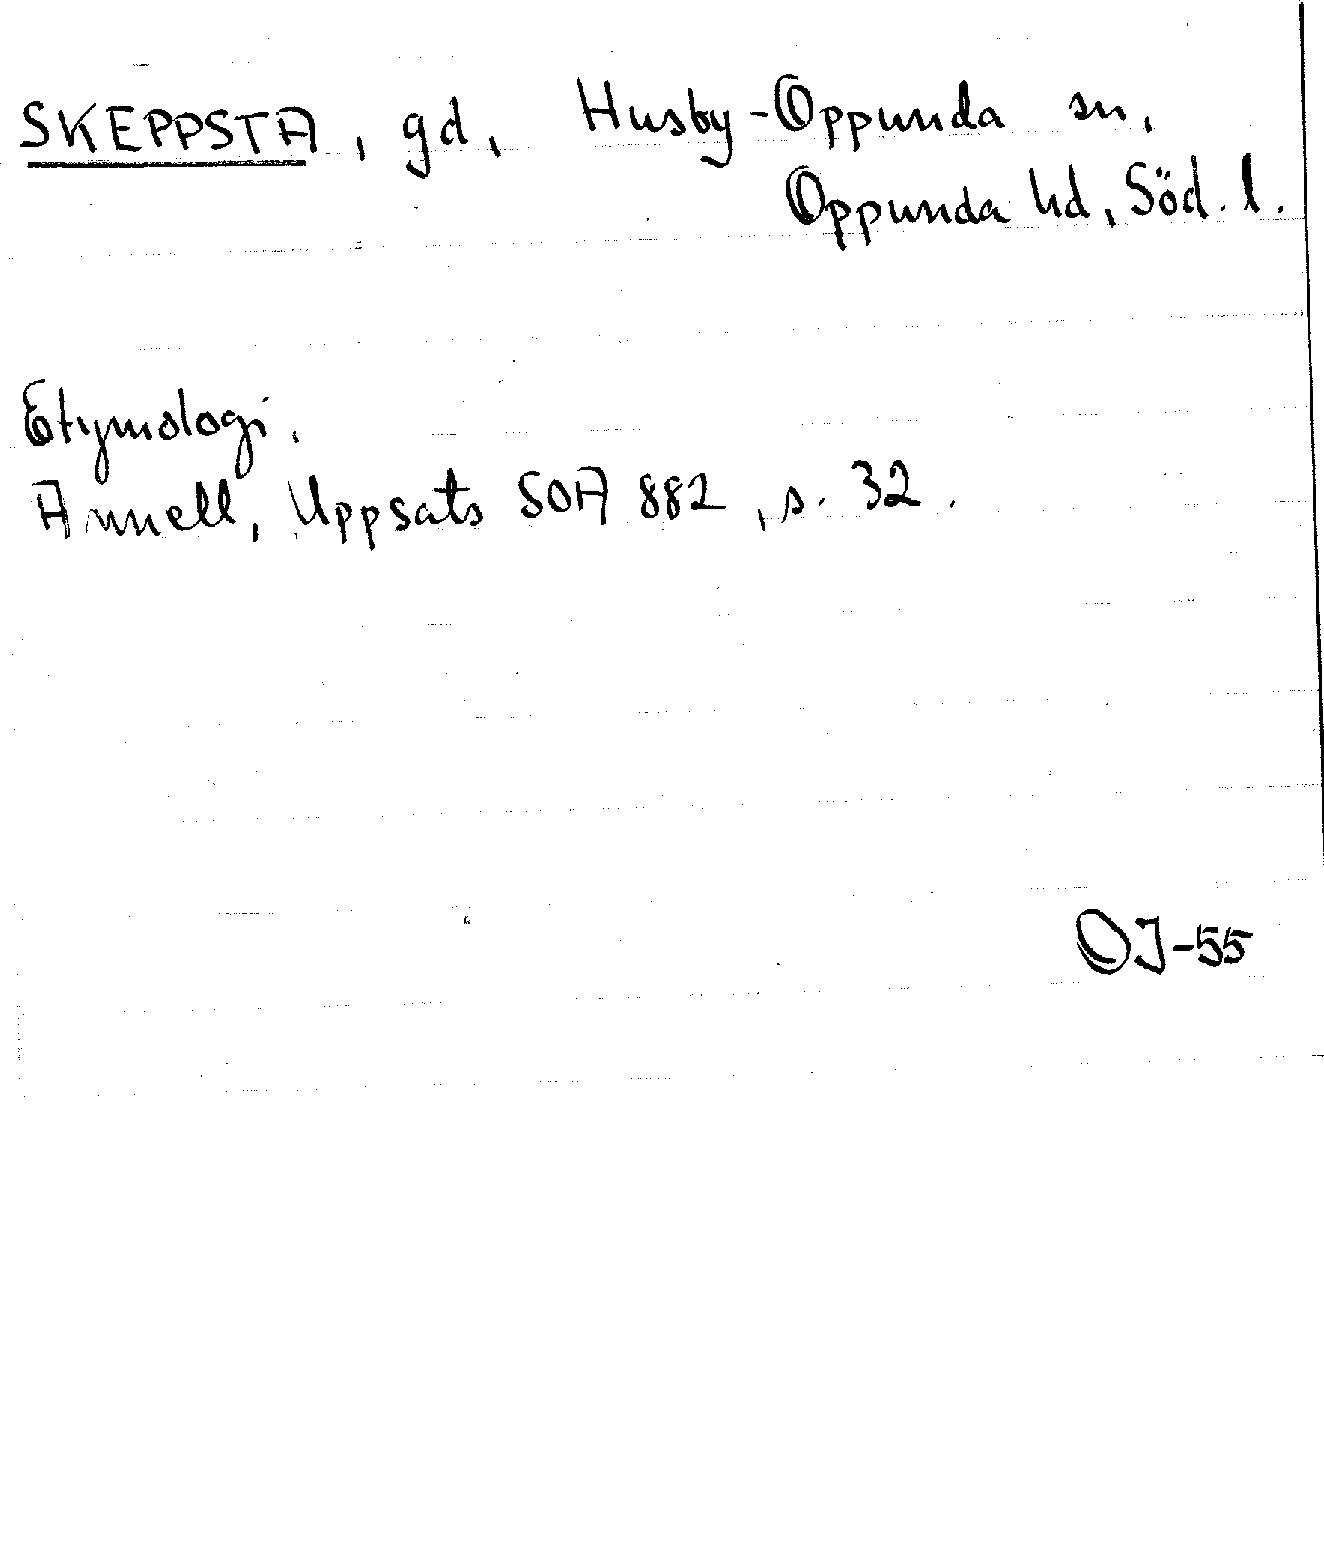 SKEPPSTA, gd, Husby-Oppunda sn,
Oppunda hd, Söd. l.
Etymologi.
Annell, Uppsats SOA 882, s. 32.
OJ-55